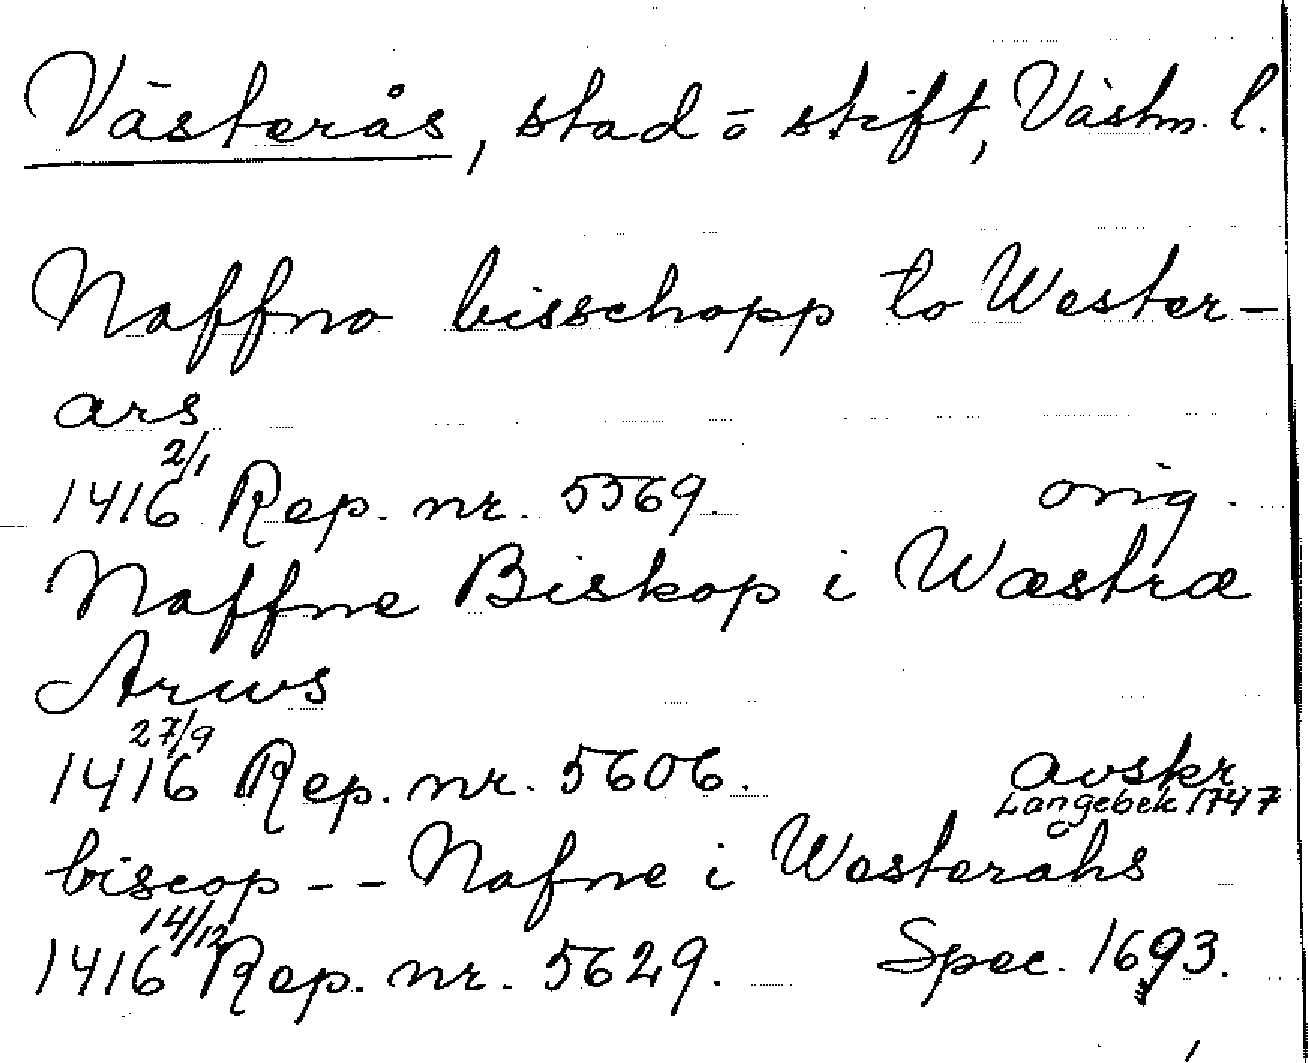 Västerås, stad o stift, Västm. l.
Naffno bisschopp to Wester-
ars
2/1
1416 Rep. nr. 5569. orig.
Naffne Biskop i Wæstræ
Arws
27/9
1416 Rep. nr. 5606. avskr
Langebek 1747
biscop -- Nafne i Westeråhs
14/12
1416 Rep. nr. 5629. Spec. 1693.